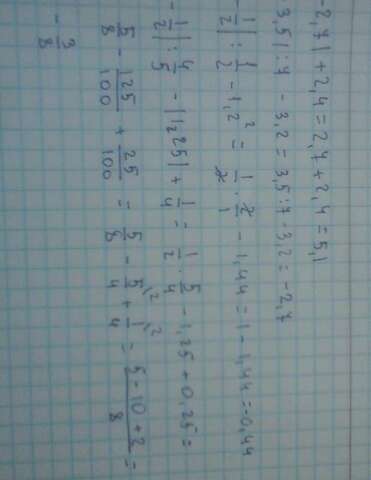 -2,7| + 2,4 = 2,7 + 2,4 = 5,1
3,5| : 7 - 3,2 = 3,5 : 7 - 3,2 = -2,7
1/2| : 1/2 - 1,2² = 1/2 · 2/1 - 1,44 = 1 - 1,44 = -0,44
-1/2| : 4/5 - |1,25| + 1/4 = 1/2 · 5/4 - 1,25 + 0,25 =
5/8 - 125/100 + 25/100 = 5/8 - 5/4 \2 + 1/4 \2 = 5 - 10 + 2/8 =
- 3/8